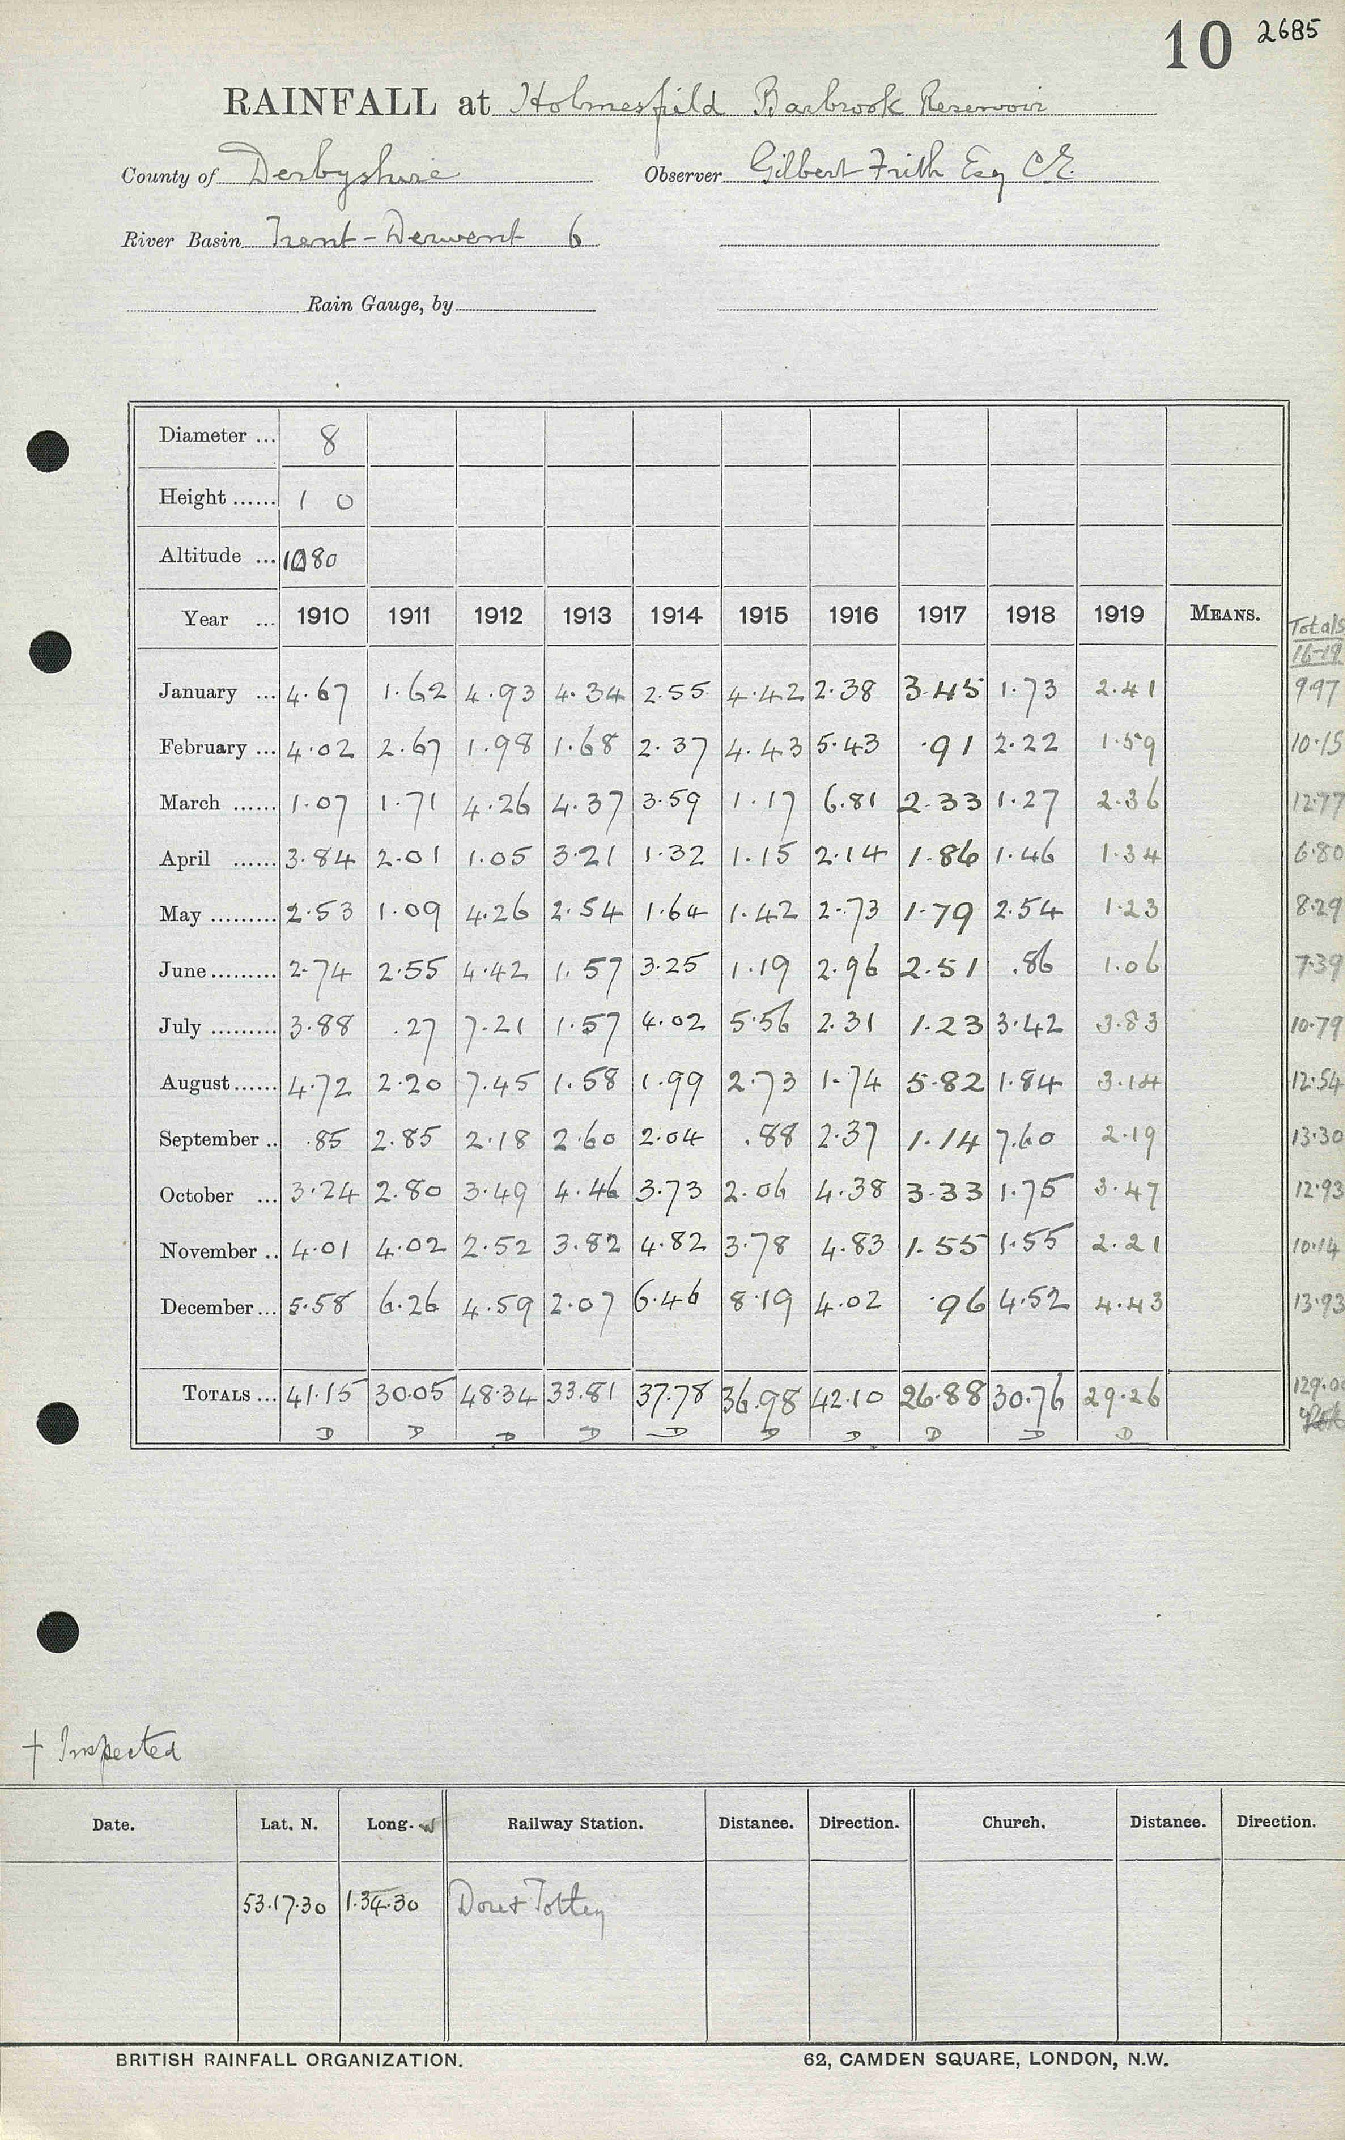 10 2685
RAINFALL at Holmesfield Barbrook Reservoir
County of Derbyshire Observer Gilbert Frith Esq C.E.
River Basin Trent-Derwent 6
Rain Gauge, by
Diameter ... 8
Height ...... 1 0
Altitude ... 1080
Year ... 1910 1911 1912 1913 1914 1915 1916 1917 1918 1919 MEANS. Totals
16-19
January ... 4.67 1.62 4.93 4.34 2.55 4.42 2.38 3.45 1.73 2.41 9.97
February ... 4.02 2.67 1.98 1.68 2.37 4.43 5.43 .91 2.22 1.59 10.15
March ...... 1.07 1.71 4.26 4.37 3.59 1.17 6.81 2.33 1.27 2.36 12.77
April ...... 3.84 2.01 1.05 3.21 1.32 1.15 2.14 1.86 1.46 1.34 6.80
May ......... 2.53 1.09 4.26 2.54 1.64 1.42 2.73 1.79 2.54 1.23 8.29
June ......... 2.74 2.55 4.42 1.57 3.25 1.19 2.96 2.51 .86 1.06 7.39
July ......... 3.88 .27 7.21 1.57 4.02 5.56 2.31 1.23 3.42 3.83 10.79
August ...... 4.72 2.20 7.45 1.58 1.99 2.73 1.74 5.82 1.84 3.14 12.54
September .. .85 2.85 2.18 2.60 2.04 .88 2.37 1.14 7.60 2.19 13.30
October ... 3.24 2.80 3.49 4.46 3.73 2.06 4.38 3.33 1.75 3.47 12.93
November .. 4.01 4.02 2.52 3.82 4.82 3.78 4.83 1.55 1.55 2.21 10.14
December ... 5.58 6.26 4.59 2.07 6.46 8.19 4.02 .96 4.52 4.43 13.93
TOTALS ... 41.15 30.05 48.34 33.81 37.78 36.98 42.10 26.88 30.76 29.26 129.00
D D D D D D D D D D
† Inspected
Date. Lat. N. Long. W Railway Station. Distance. Direction. Church. Distance. Direction.
53.17.30 1.34.30 Dore & Totley
BRITISH RAINFALL ORGANIZATION. 62, CAMDEN SQUARE, LONDON, N.W.